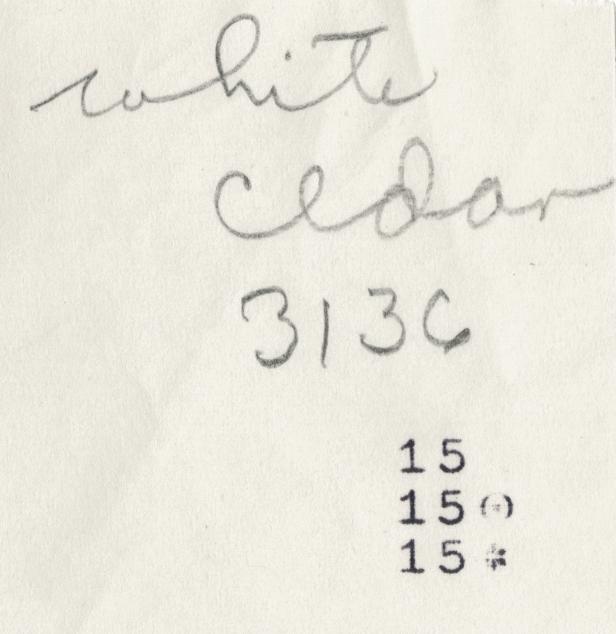 white
cedar
3136
15
15
15 *